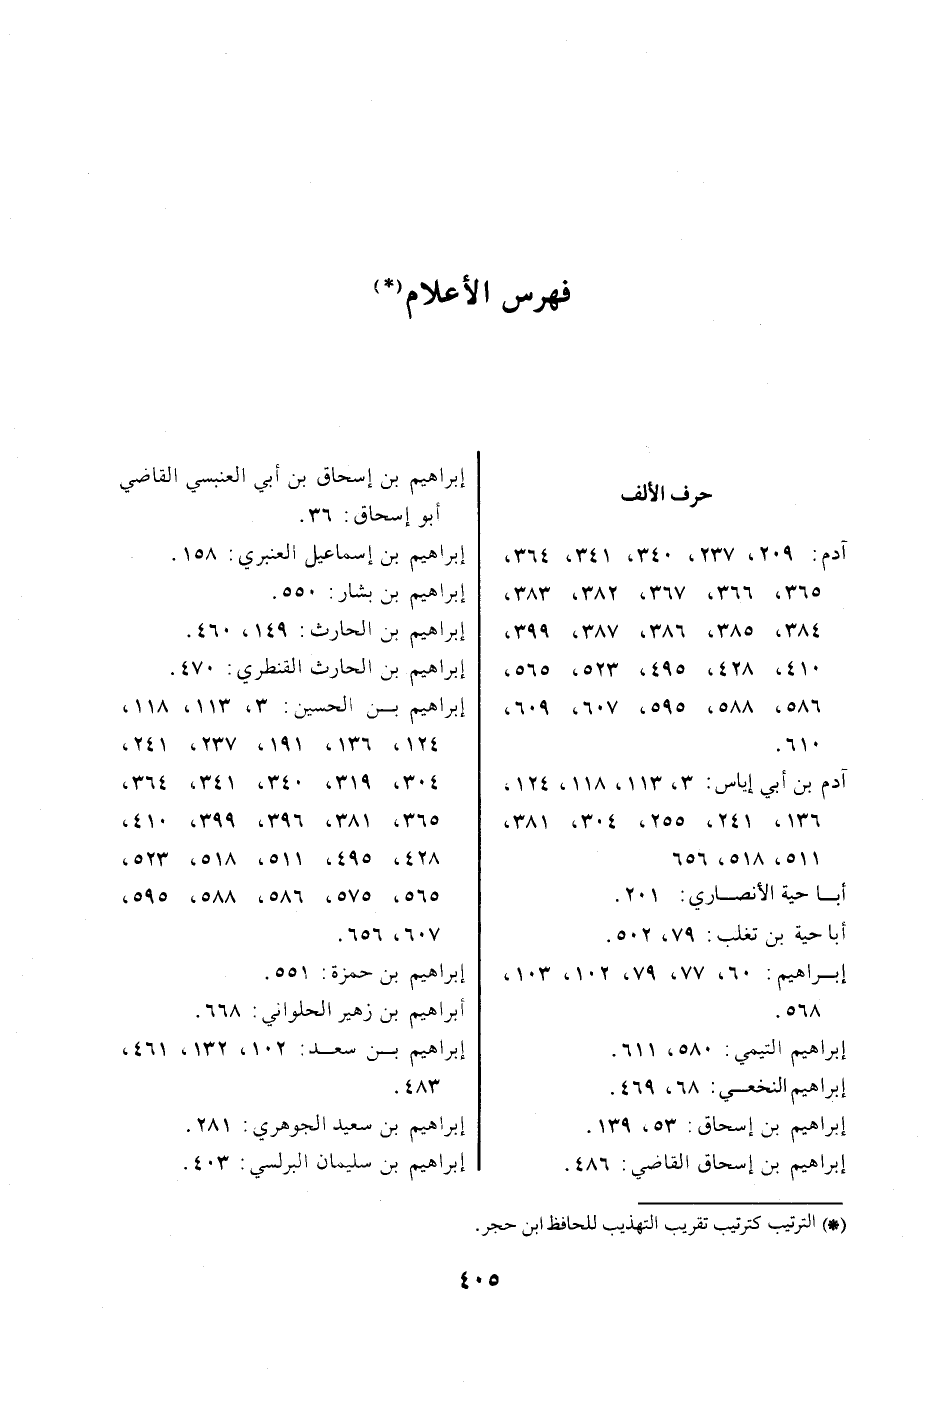 فهرس الأعلام(*)
حرف الألف
آدم: ٢٠٩، ٢٣٧، ٣٤٠، ٣٤١، ٣٦٤،
٣٦٥، ٣٦٦، ٣٦٧، ٣٨٢، ٣٨٣،
٣٨٤، ٣٨٥، ٣٨٦، ٣٨٧، ٣٩٩،
٤١٠، ٤٢٨، ٤٩٥، ٥٢٣، ٥٦٥،
٥٨٦، ٥٨٨، ٥٩٥، ٦٠٧، ٦٠٩،
٦١٠.
آدم بن أبي إياس: ٣، ١١٣، ١١٨، ١٢٤،
١٣٦، ٢٤١، ٢٥٥، ٣٠٤، ٣٨١،
٥١١، ٥١٨، ٦٥٦
أبا حية الأنصاري: ٢٠١.
أبا حية بن تغلب: ٧٩، ٥٠٢.
إبراهيم: ٦٠، ٧٧، ٧٩، ١٠٢، ١٠٣،
٥٦٨.
إبراهيم التيمي: ٥٨٠، ٦١١.
إبراهيم النخعي: ٦٨، ٤٦٩.
إبراهيم بن إسحاق: ٥٣، ١٣٩.
إبراهيم بن إسحاق القاضي: ٤٨٦.
إبراهيم بن إسحاق بن أبي العنبسي القاضي
أبو إسحاق: ٣٦.
إبراهيم بن إسماعيل العنبري: ١٥٨.
إبراهيم بن بشار: ٥٥٠.
إبراهيم بن الحارث: ١٤٩، ٤٦٠.
إبراهيم بن الحارث القنطري: ٤٧٠.
إبراهيم بن الحسين: ٣، ١١٣، ١١٨،
١٢٤، ١٣٦، ١٩١، ٢٣٧، ٢٤١،
٣٠٤، ٣١٩، ٣٤٠، ٣٤١، ٣٦٤،
٣٦٥، ٣٨١، ٣٩٦، ٣٩٩، ٤١٠،
٤٢٨، ٤٩٥، ٥١١، ٥١٨، ٥٢٣،
٥٦٥، ٥٧٥، ٥٨٦، ٥٨٨، ٥٩٥،
٦٠٧، ٦٥٦.
إبراهيم بن حمزة: ٥٥١.
أبراهيم بن زهير الحلواني: ٦٦٨.
إبراهيم بن سعد: ١٠٢، ١٣٢، ٤٦١،
٤٨٣.
إبراهيم بن سعيد الجوهري: ٢٨١.
إبراهيم بن سليمان البرلسي: ٤٠٣.
(*) الترتيب كترتيب تقريب التهذيب للحافظ ابن حجر.
٤٠٥